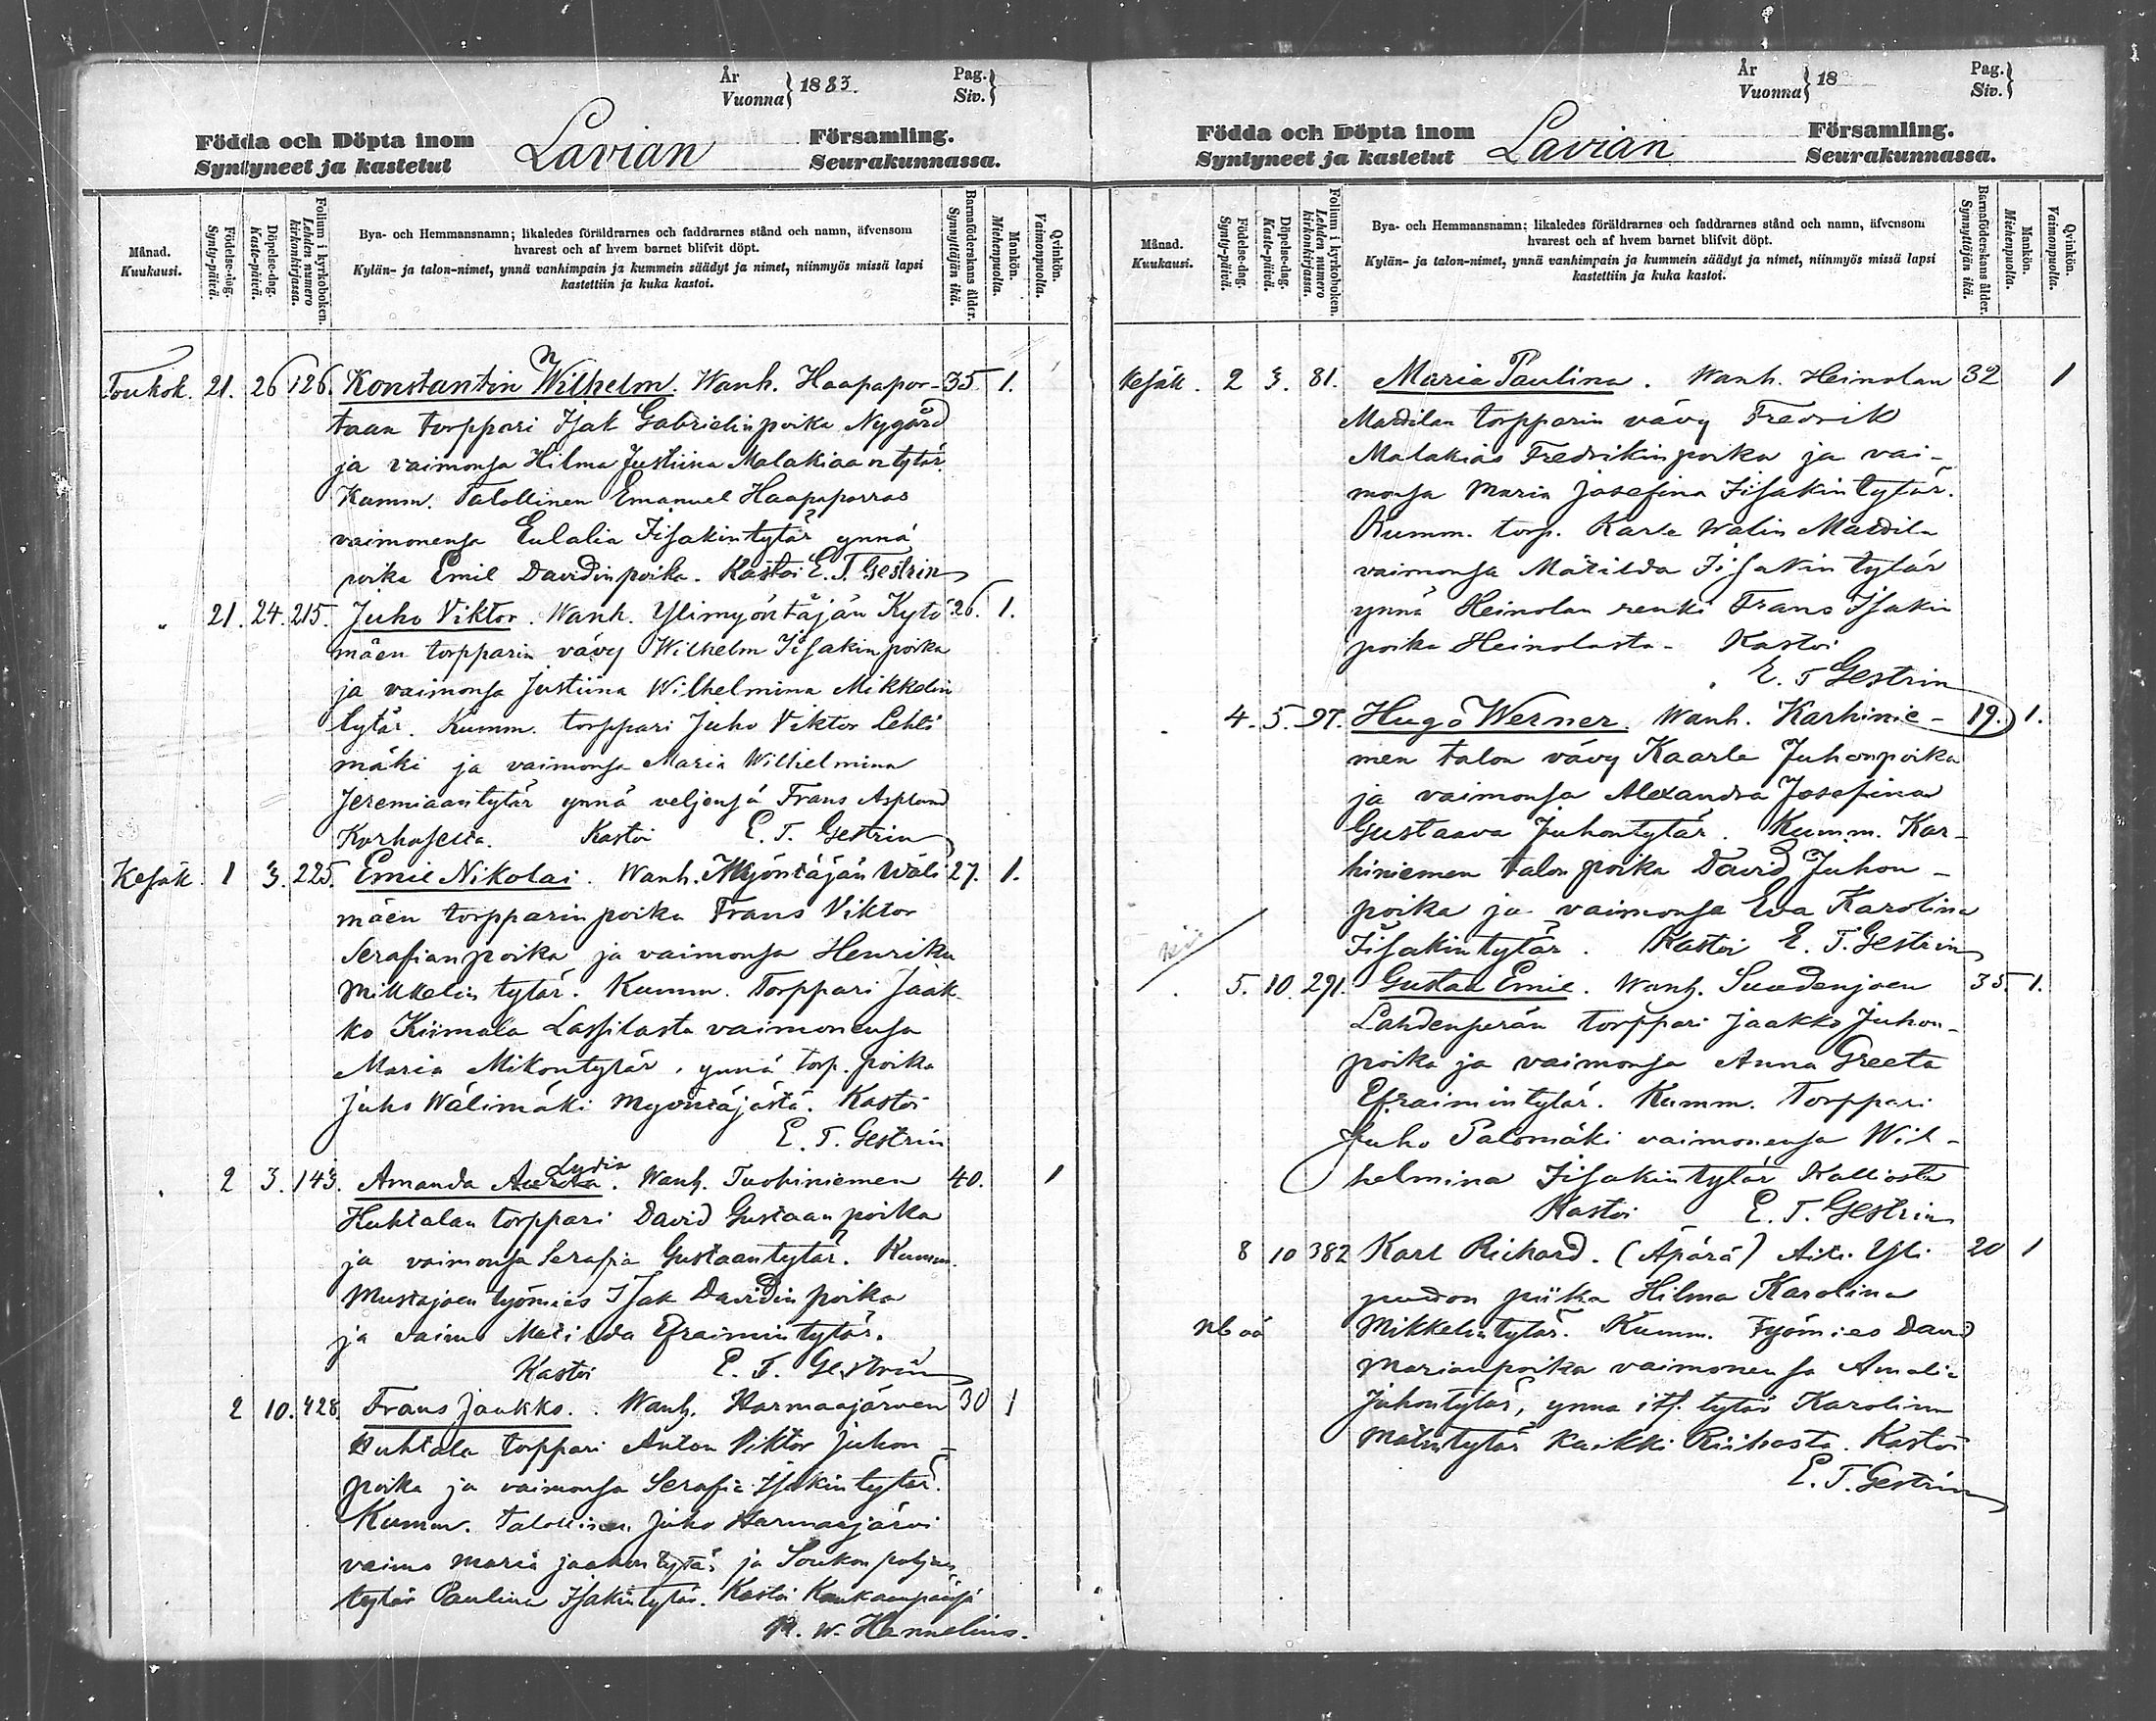 År
Vuonna } 1883.
Pag.
Siv. }
Födda och Döpta inom
Syntyneet ja kastetut
Lavian
Församling.
Seurakunnassa.
Månad.
Kuukausi.
Födelse-dag.
Synty-päivä.
Döpelse-dag.
Kaste-päivä.
Folium i kyrkoboken.
Lehden numero
kirkonkirjassa.
Bya- och Hemmansnamn; likaledes föräldrarnes och faddrarnes stånd och namn, äfvensom
hvarest och af hvem barnet blifvit döpt.
Kylän- ja talon-nimet, ynnä vanhimpain ja kummein säädyt ja nimet, niinmyös missä lapsi
kastettiin ja kuka kastoi.
Barnaföderskans ålder.
Synnyttäjän ikä.
Mankön.
Miehenpuolta.
Qvinkön.
Vaimonpuolta.
Toukok. 21. 26 126. Konstantin Wilhelm. Wanh. Haapapor- 35. 1.
taan torppari Isak Gabrielinpoika Nygård
ja vaimonsa Hilma Justiina Malakiaantytär.
Kumm. Talollinen Emanuel Haapaporras
vaimonensa Eulalia Iisakintytär ynnä
poika Emil Davidinpoika. Kastoi E. T. Gestrin
" 21. 24. 215. Juho Viktor. Wanh. Ylimyöntäjän Kytö 26. 1.
mäen torpparin vävy Wilhelm Iisakinpoika
ja vaimonsa Justiina Wilhelmina Mikkelin
tytär. Kumm. torppari Juho Viktor Lehti
mäki ja vaimonsa Maria Wilhelmina
Jeremiaantytär ynnä veljensä Frans Asplund
Karhuselta. Kastoi E. T. Gestrin
Kesäk. 1 3. 225. Emil Nikolai. Wanh. Myöntäjän Wäli 27. 1.
mäen torpparin poika Frans Viktor
Serafianpoika ja vaimonsa Henrika
Mikkelin tytär. Kumm. Torppari Jaak-
ko Kiimala Lassilasta vaimonensa
Maria Mikontytär, ynnä torp. poika
Juho Wälimäki Myöntäjästä. Kastoi
E. T. Gestrin
Lydia
2 3. 143. Amanda Aurora. Wanh. Tuohiniemen 40. 1
Huhtalan torppari David Gustaanpoika
ja vaimonsa Serafia Gustaantytär. Kumm.
Mustajoen työmies Isak Davidin poika
ja vaimo Matilda Efraimintytär.
Kastoi E. T. Gestrin
2 10. 428. Frans Jaakko. Wanh. Harmaajärven 30 1
Huhtala torppari Anton Viktor Juhon-
poika ja vaimonsa Serafia Isakintytär.
Kumm. talollinen Juho Harmaajärvi
vaimo Maria Jaakontytär ja Soukon pohjan
tytär Paulina Isakintytär. Kastoi Kankaanpäässä
W. Hannelius.
År
Vuonna } 18
Pag.
Siv. }
Födda och Döpta inom
Syntyneet ja kastetut
Lavian
Församling.
Seurakunnassa.
Månad.
Kuukausi.
Födelse-dag.
Synty-päivä.
Döpelse-dag.
Kaste-päivä.
Folium i kyrkoboken.
Lehden numero
kirkonkirjassa.
Bya- och Hemmansnamn; likaledes föräldrarnes och faddrarnes stånd och namn, äfvensom
hvarest och af hvem barnet blifvit döpt.
Kylän- ja talon-nimet, ynnä vanhimpain ja kummein säädyt ja nimet, niinmyös missä lapsi
kastettiin ja kuka kastoi.
Barnaföderskans ålder.
Synnyttäjän ikä.
Mankön.
Miehenpuolta.
Qvinkön.
Vaimonpuolta.
Kesäk. 2 3. 81. Maria Paulina. Wanh. Heinolan 32 1
Mattilan torpparin vävy Fredrik
Malakias Fredrikinpoika ja vai-
monsa Maria Josefina Iisakintytär.
Kumm. torp. Karle Walin Mattila
vaimonsa Matilda Iisakin tytär
ynnä Heinolan renki Frans Isakin
poika Heinolasta. Kastoi
E. T Gestrin
4. 5. 97. Hugo Werner. Wanh. Karhinie- 19. 1.
men talon vävy Kaarle Juhonpoika
ja vaimonsa Alexandra Josefina
Gustaava Juhontytär. Kumm. Kar-
hiniemen talon poika David Juhon-
poika ja vaimonsa Eva Karolina
Iisakintytär. Kastoi E. T. Gestrin
5. 10. 291. Gustaa Emil. Wanh. Suodenjoen 35. 1.
Lahdenperän torppari Jaakko Juhon-
poika ja vaimonsa Anna Greeta
Efraimintytär. Kumm. Torppari
Juho Palomäki vaimonensa Wil-
helmina Iisakintytär Kalliosta
Kastoi E. T. Gestrin
8 10 382 Karl Richard. (Äpärä) Äiti. Yli 20 1
puodon piika Hilma Karolina
Mikkelintytär. Kumm. Työmies David
Marianpoika vaimonensa Amalia
Juhontytär, ynnä its. tytär Karolina
Matintytär kaikki Riihosta. Kastoi
E. T. Gestrin